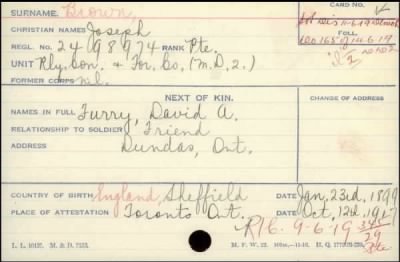 SURNAME. Brown,
CARD NO.
CHRISTIAN NAMES Joseph
REGL. NO. 2498974 RANK Pte.
FOLL.
UNIT Rly. Con. & For. Co. (M.D. 2.)
FORMER CORPS nil.
NEXT OF KIN.
CHANGE OF ADDRESS
NAMES IN FULL Furry, David A.
RELATIONSHIP TO SOLDIER Friend
ADDRESS Dundas, Ont.
COUNTRY OF BIRTH England, Sheffield DATE Jan. 23rd, 1899
PLACE OF ATTESTATION Toronto Ont. DATE Oct. 12th, 1917
R16. 9-6-19
M. F. W. 22.